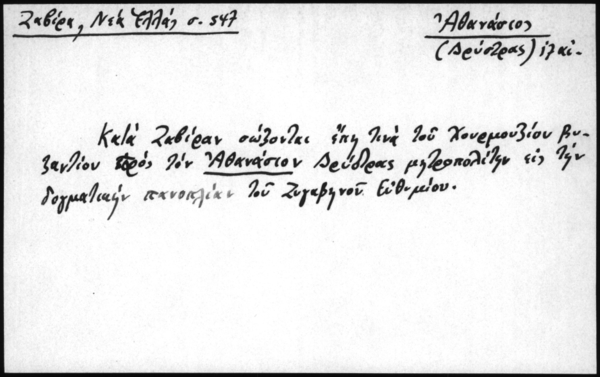 Ζαβίρα, Νέα Ἑλλάς σ. 547
Ἀθανάσιος
(Δρύστρας)
Κατά Ζαβίραν σώζονται ἔπη τινά τοῦ Χουρμουζίου Βυ-
ζαντίου πρός τόν Ἀθανάσιον Δρύστρας μητροπολίτην εἰς τήν
δογματικήν πανοπλίαν τοῦ Ζυγαβηνοῦ Εὐθυμίου.